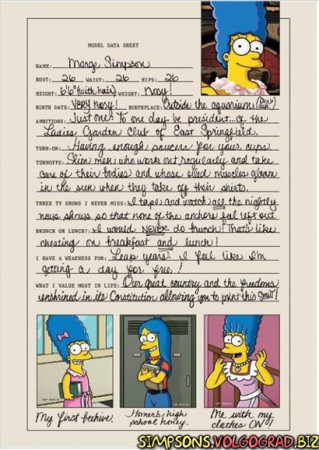 MODEL DATA SHEET
NAME: Marge Simpson
BUST: 26 WAIST: 26 HIPS: 26
HEIGHT: 6'6" (with hair) WEIGHT: nosy!
BIRTH DATE: VERY nosy! BIRTHPLACE: Outside the aquarium
AMBITIONS: Just one! To one day be president...of the
Ladies Garden Club of East Springfield.
TURN-ON: Having enough saucers for your cups.
TURNOFFS: Slim men who work out regularly and take
care of their bodies and whose oiled muscles gleam
in the sun when they take off their shirts.
THREE TV SHOWS I NEVER MISS: I tape and watch all the nightly
news shows so that none of the anchors feel left out.
BRUNCH OR LUNCH?: I would NEVER do brunch! That's like
cheating on breakfast and lunch!
I HAVE A WEAKNESS FOR: Leap years! I feel like I'm
getting a day for free!
WHAT I VALUE MOST IN LIFE: Our great country and the freedoms
enshrined in its Constitution allowing you to print this
My first beehive.
Homer's high
school honey.
Me with my
clothes ON!
SIMPSONS.VOLGOGRAD.BIZ